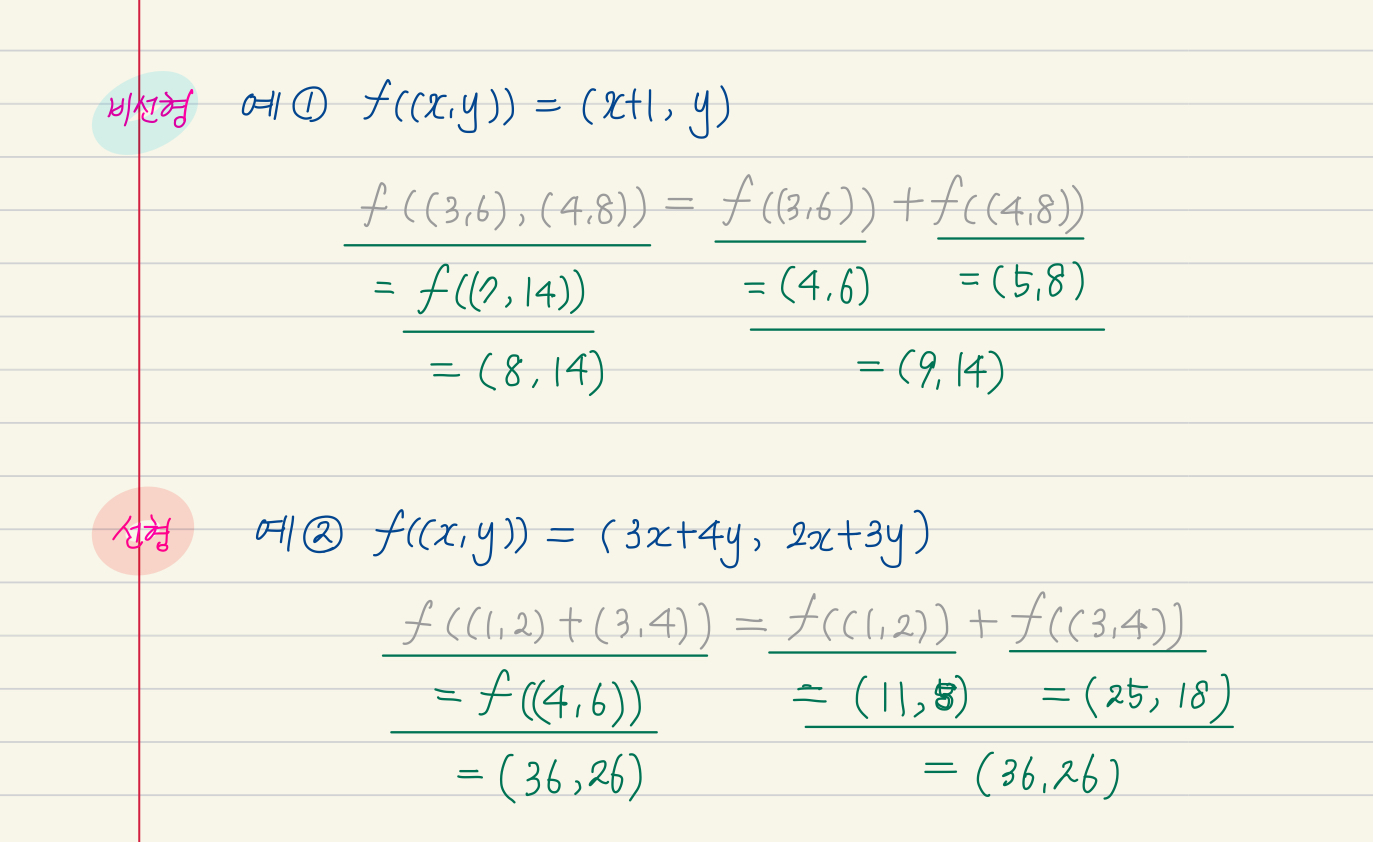 비선형 예① f((x,y)) = (x+1, y)
f((3,6), (4,8)) = f((3,6)) + f((4,8))
= f((7,14)) = (4,6) = (5,8)
= (8,14) = (9,14)
선형 예② f((x,y)) = (3x+4y, 2x+3y)
f((1,2)+(3,4)) = f((1,2)) + f((3,4))
= f((4,6)) = (11,8) = (25,18)
= (36,26) = (36,26)